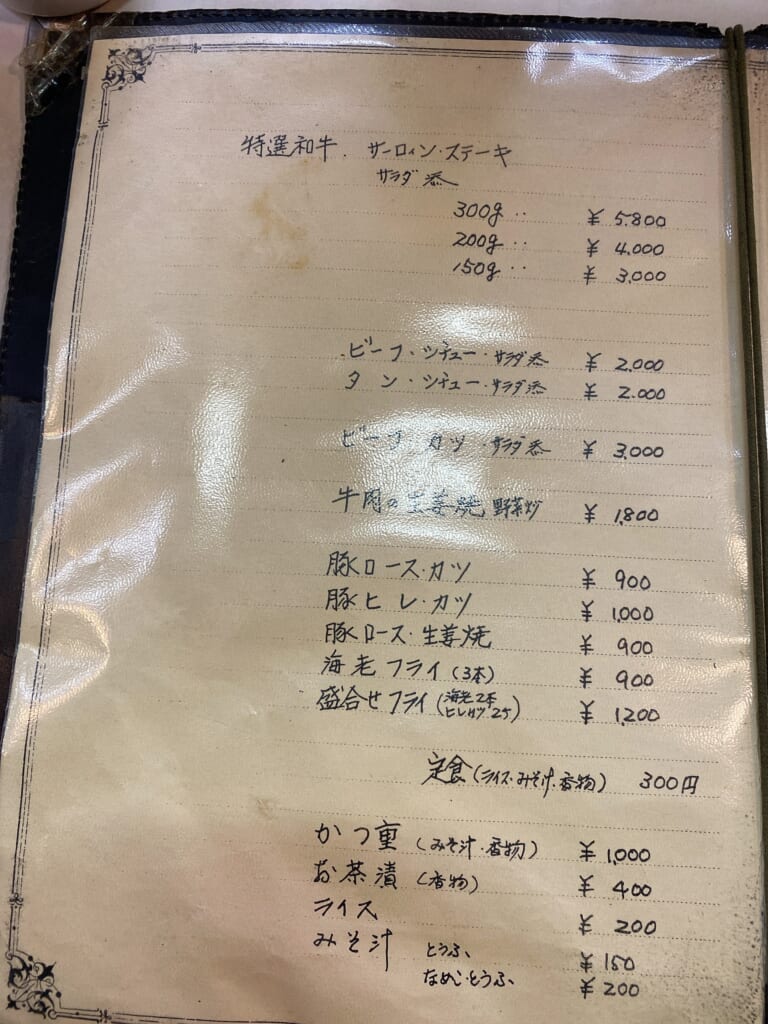 特選和牛. サーロィン・ステーキ
サラダ添
300g ‥ ¥ 5.800
200g ‥ ¥ 4.000
150g ‥ ¥ 3.000
ビーフ・シチュー・サラダ添 ¥ 2.000
タン・シチュー・サラダ添 ¥ 2.000
ビーフ カツ・サラダ添 ¥ 3.000
牛肉の生姜焼 野菜炒 ¥ 1.800
豚ロース・カツ ¥ 900
豚ヒレ・カツ ¥ 1.000
豚ロース・生姜焼 ¥ 900
海老フライ(3本) ¥ 900
盛合せフライ(海老2本 ヒレカツ2ケ) ¥ 1.200
定食(ライス・みそ汁・香物) 300円
かつ重(みそ汁・香物) ¥ 1.000
お茶漬(香物) ¥ 400
ライス ¥ 200
みそ汁 とうふ、 ¥ 150
なめこ・とうふ、 ¥ 200